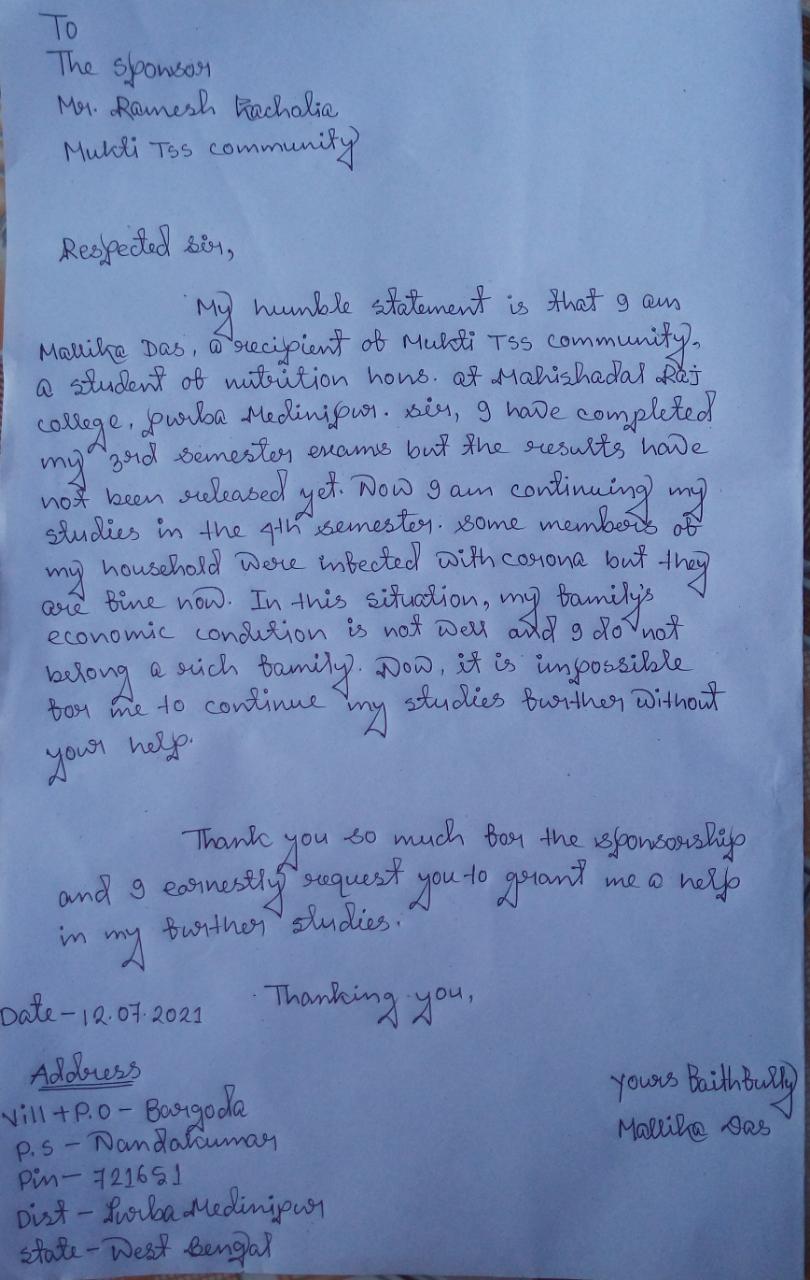 To
The sponsor
Mr. Ramesh Kachalia
Mukti Tss community
Respected sir,
My humble statement is that I am
Mallika Das, a recipient of Mukti TSS community,
a student of nutrition hons. at Mahishadal Raj
college, purba Medinipur. sir, I have completed
my 3rd semester exams but the results have
not been released yet. Now I am continuing my
studies in the 4th semester. some members of
my household were infected with corona but they
are fine now. In this situation, my family's
economic condition is not well and I do not
belong a rich family. Now, it is impossible
for me to continue my studies further without
your help.
Thank you so much for the sponsorship
and I earnestly request you to grant me a help
in my further studies.
Thanking you,
Date - 12.07.2021
Address
Vill + P.O - Bargoda
P.S - Nandakumar
Pin - 721651
Dist - Purba Medinipur
State - West Bengal
yours faithfully
Mallika Das